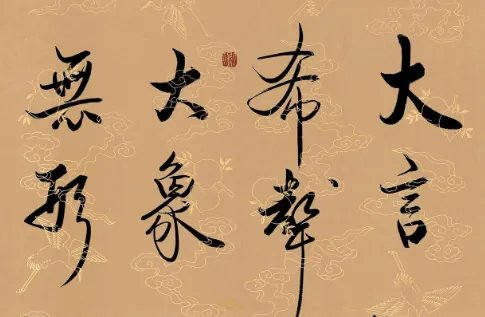 大言
希聲
大象
無形